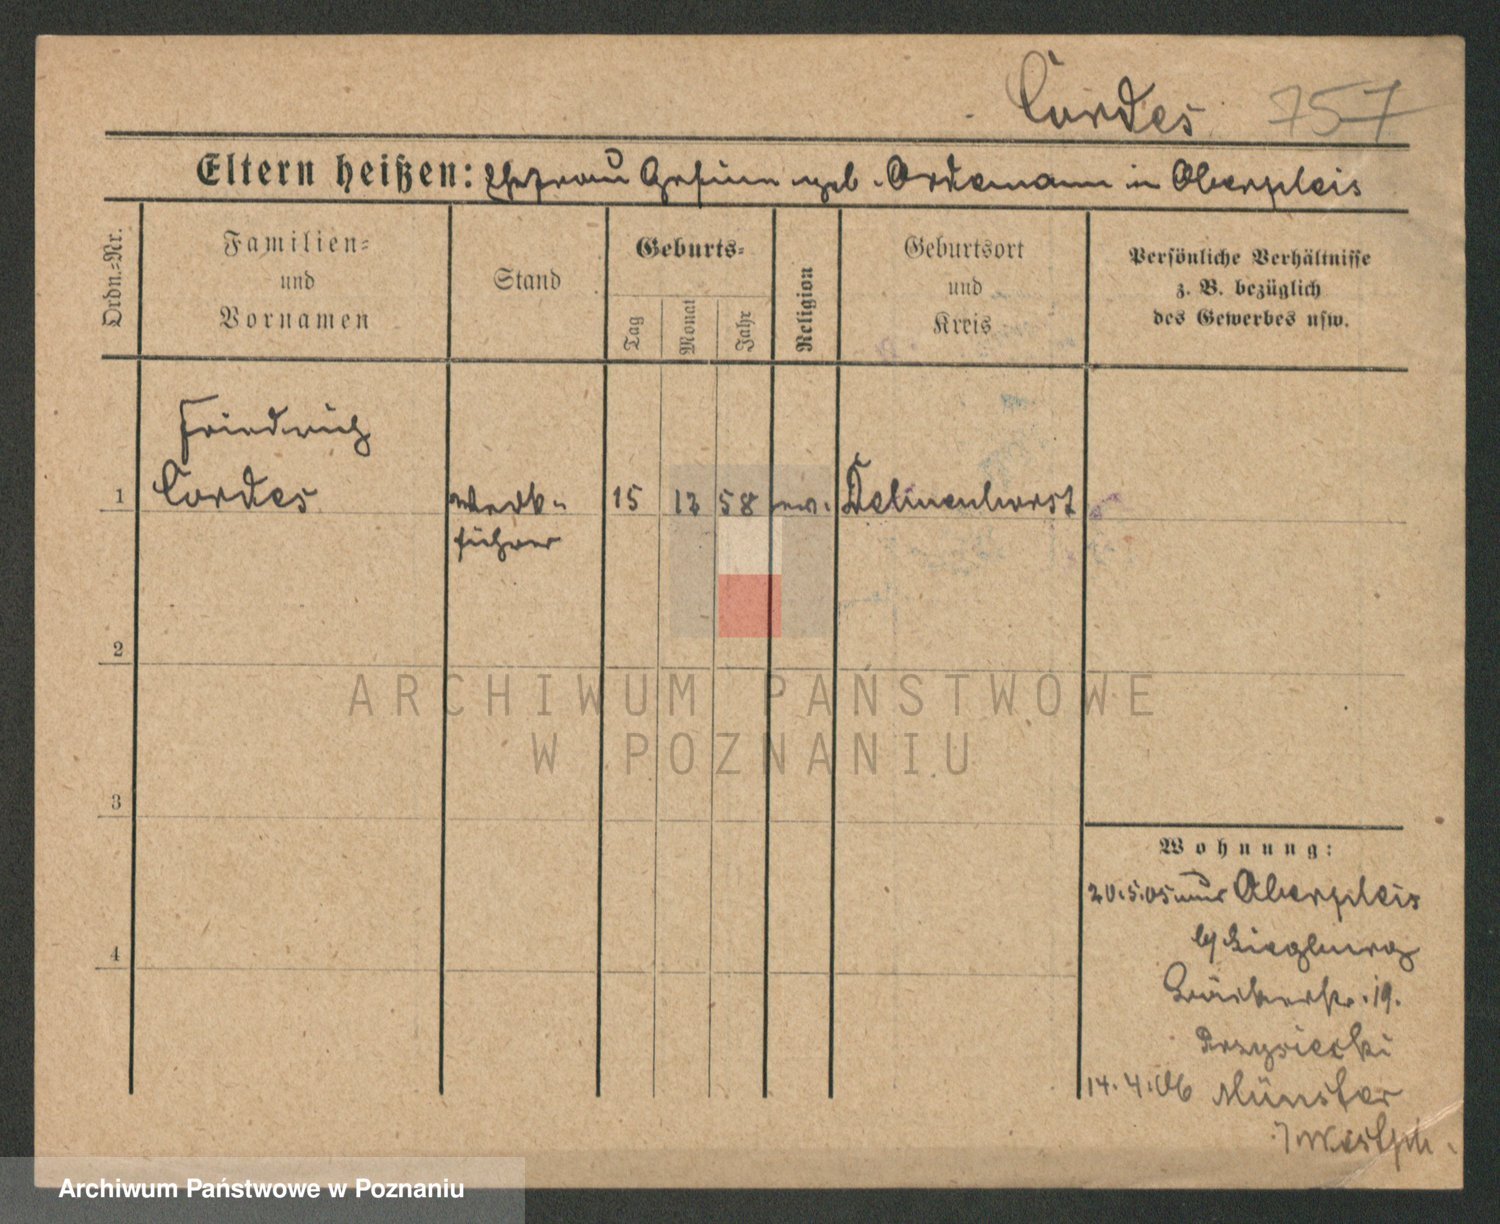 Cordes 757
Eltern heißen: Ehefrau Gesine geb. Ordemann in Oberpleis
Ordn.=Nr.
Familien=
und
Vornamen
Stand
Geburts=
Tag
Monat
Jahr
Religion
Geburtsort
und
Kreis
Persönliche Verhältnisse
z. B. bezüglich
des Gewerbes usw.
Friedrich
1 Cordes Werk= 15 12 58 ev. Delmenhorst
führer
2
3
4
Wohnung:
20.5.05 aus Oberpleis
b/ Siegburg
19.
14.4.06 Münster
i/Westph.
ARCHIWUM PAŃSTWOWE
W POZNANIU
Archiwum Państwowe w Poznaniu